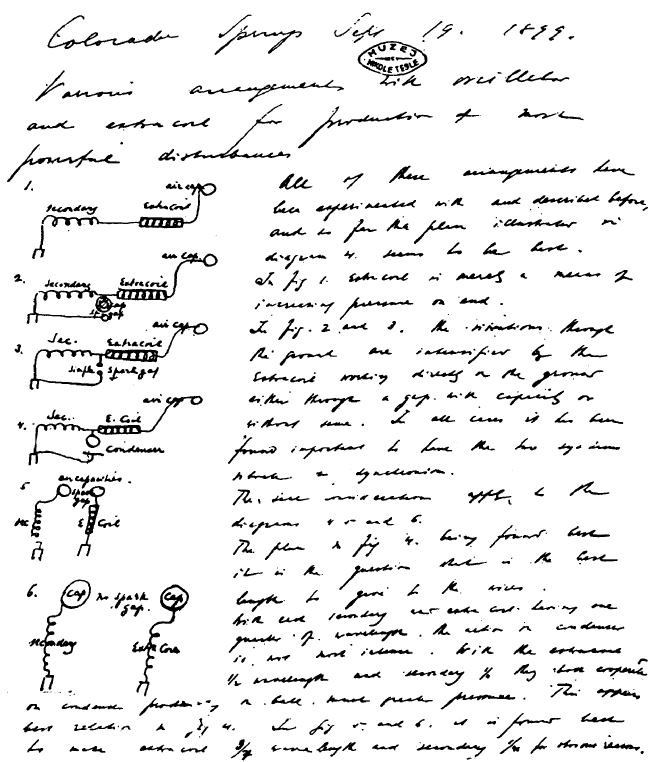 Colorado Springs Sept. 19. 1899.
MUZEJ NIKOLE TESLE
Various arrangements with oscillator
and extra coil for production of most
powerful disturbances
1.
secondary
Extra coil
air cap
2.
Secondary
Extra coil
air cap
gap
3.
Sec.
Extra coil
air cap
single spark gap
4.
Sec.
E. Coil
air cap
Condenser
5
air capacities.
spark gap
sec
E Coil
6.
Cap
no spark gap.
Cap
secondary
Extra Coil
All of these arrangements have
been experimented with and described before,
and so far the plan illustrated in
diagram 4. seems to be best.
In fig 1. Extra coil is merely a means of
increasing pressure on end.
In fig. 2 and 3. the vibrations through
the ground are intensified by the
Extra coil working directly on the ground
either through a gap with capacity or
without same. In all cases it has been
found important to have the two systems
in synchronism.
The same consideration apply to the
diagrams 4 5 and 6.
The plan in fig 4. being found best
it is the question what is the best
length to give to the wires.
With each secondary and extra coil having one
quarter of wavelength the action on condenser
is not most intense. With the extra coil
1/2 wavelength and secondary 1/4 they both cooperate
on condenser producing on ball most great pressure. This appears
best relation in fig 4. In fig 5 and 6. it is found best
to make extra coil 3/4 wave length and secondary 1/4 for obvious reasons.